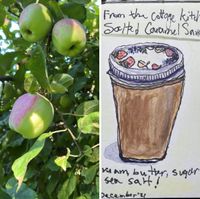 From the Cottage Kitch
Salted Caramel Sau
eam, butter, sugar
sea salt!
December '21